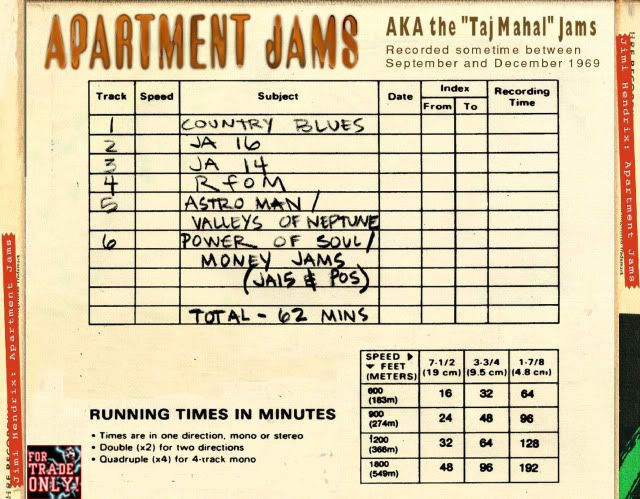 APARTMENT JAMS
AKA the "Taj Mahal" Jams
Recorded sometime between
September and December 1969
Track Speed Subject Date Index Recording Time
From To
1 COUNTRY BLUES
2 JA 16
3 JA 14
4 RfOM
5 ASTRO MAN /
VALLEYS OF NEPTUNE
6 POWER OF SOUL /
MONEY JAMS
(JAIS & POS)
TOTAL - 62 MINS
SPEED ▶ 7-1/2 3-3/4 1-7/8
▼ FEET (19 cm) (9.5 cm) (4.8 cm)
(METERS)
600 16 32 64
(183m)
900 24 48 96
(274m)
1200 32 64 128
(366m)
1800 48 96 192
(549m)
RUNNING TIMES IN MINUTES
• Times are in one direction, mono or stereo
• Double (x2) for two directions
• Quadruple (x4) for 4-track mono
FOR
TRADE
ONLY!
Jimi Hendrix: Apartment Jams
Jimi Hendrix: Apartment Jams